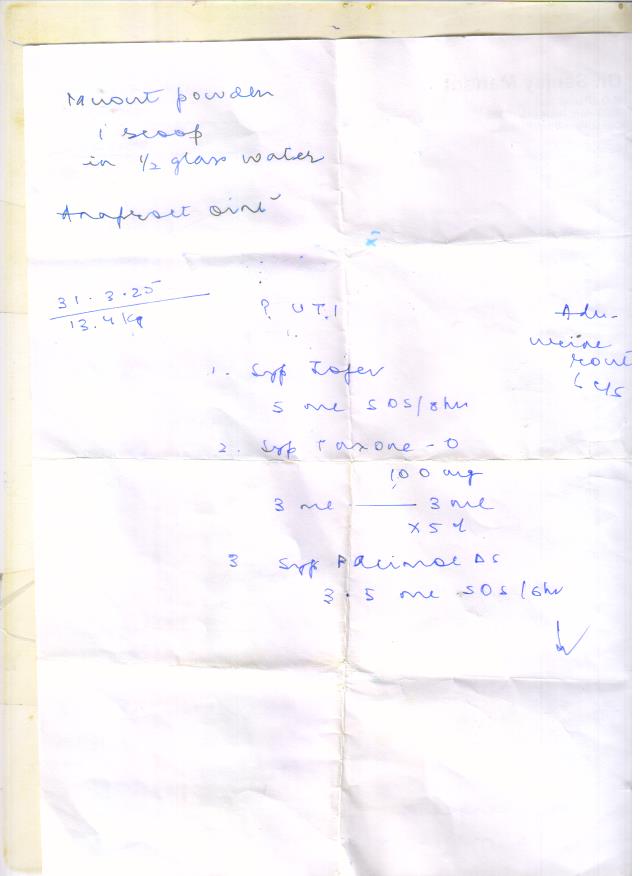 powder
1 scoop
in 1/2 glass water
Anafroet oint
31.3.25
13.4 kg
? UTI
Adv-
urine
rout
c/s
1. Syp
5 ml SOS/8hr
2. Syp Taxone-O
100 mg
3 ml —— 3 ml
x 5 d
3 Syp Pacimol DS
3.5 ml SOS/6hr